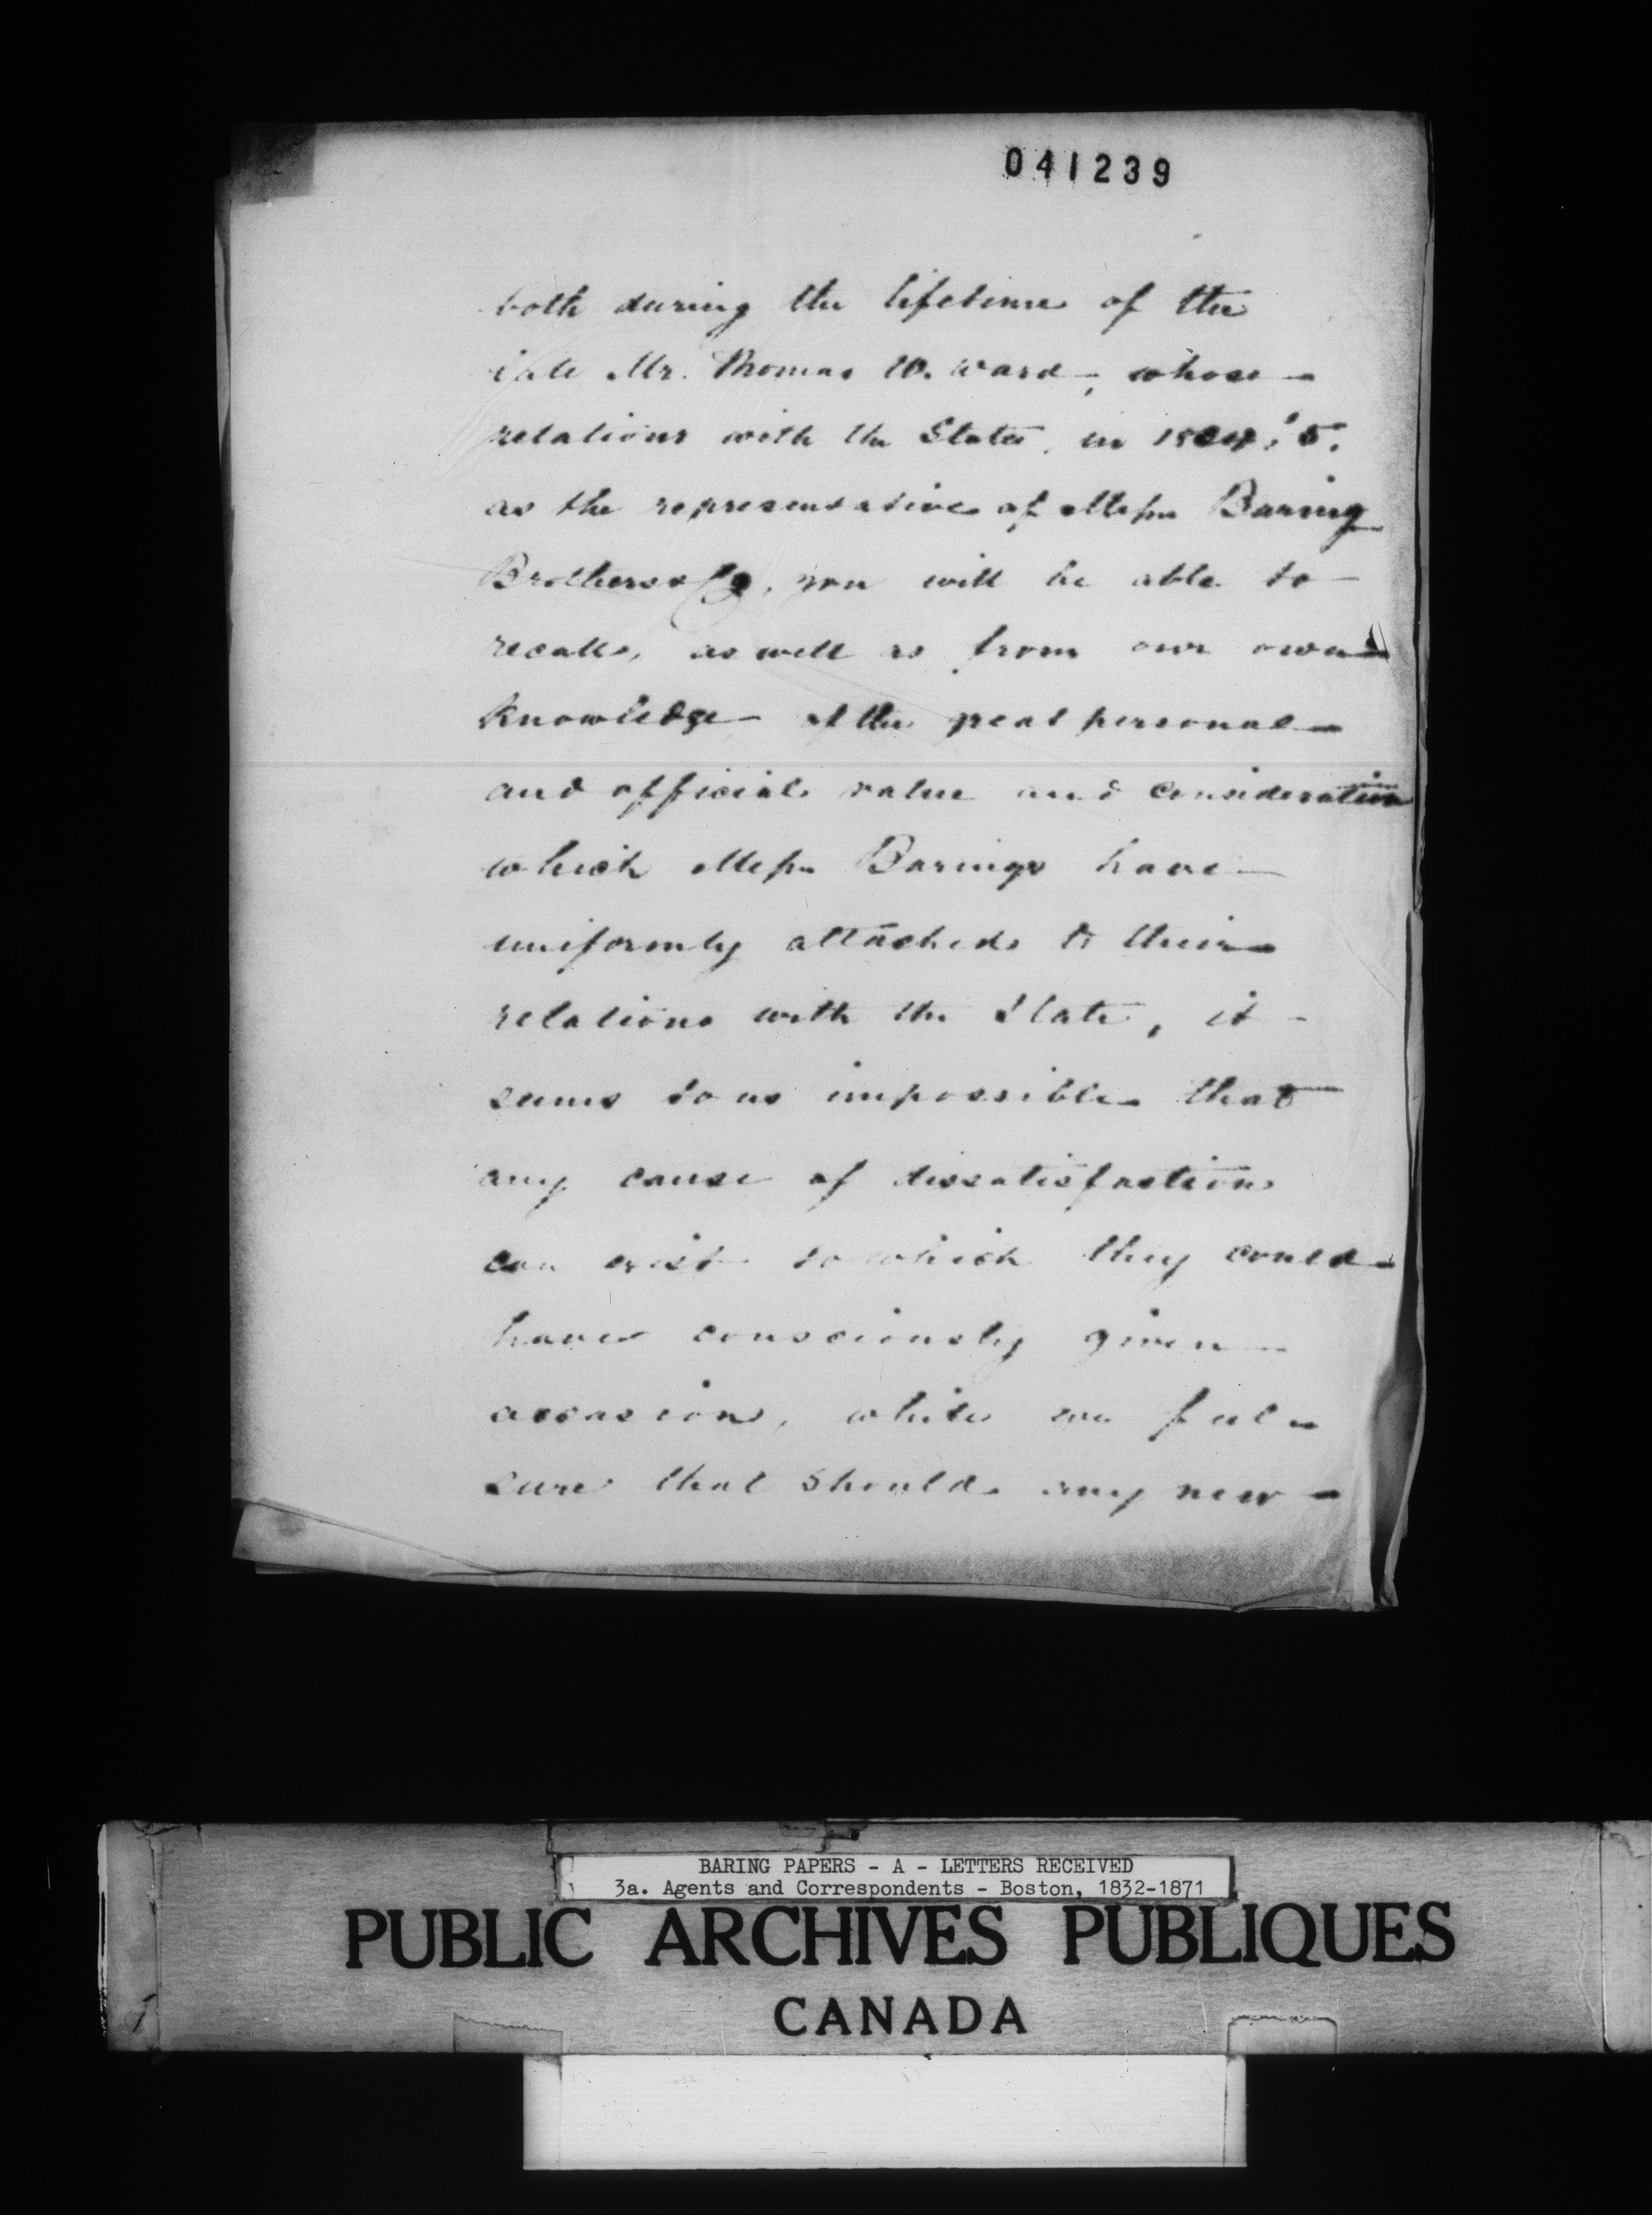 041239
both during the lifetime of the
late Mr. Thomas W. Ward, whose
relations with the State, in
as the representative of Messrs Baring
Brothers & Co, you will be able to
recall, as well as from our own
knowledge of the great personal
and official value and consideration
which Messrs Barings have
uniformly attached to their
relations with the State, it
seems to us impossible that
any cause of dissatisfaction
can exist to which they could
have consciously given
occasion, while we feel
sure that should any new
BARING PAPERS - A - LETTERS RECEIVED
3a. Agents and Correspondents - Boston, 1832-1871
PUBLIC ARCHIVES PUBLIQUES
CANADA